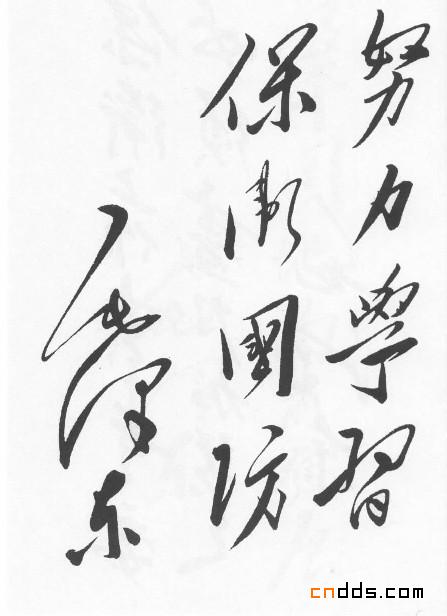 努力學習
保衛國防
毛澤东
cndds.com